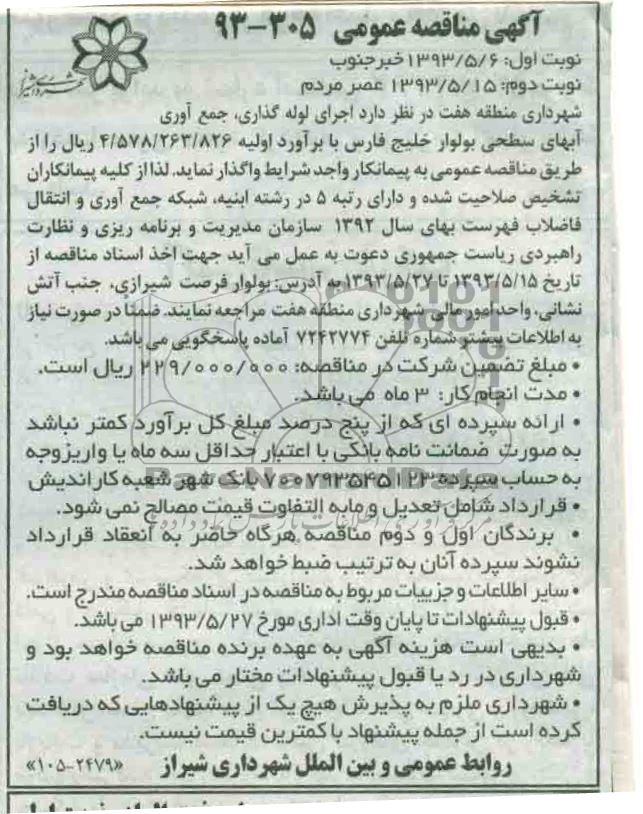 آگهی مناقصه عمومی ۳۰۵-۹۳
نوبت اول: ۱۳۹۳/۵/۶ خبرجنوب
نوبت دوم: ۱۳۹۳/۵/۱۵ عصر مردم
شهرداری منطقه هفت در نظر دارد اجرای لوله گذاری، جمع آوری
آبهای سطحی بولوار خلیج فارس با برآورد اولیه ۴/۵۷۸/۲۶۳/۸۲۶ ریال را از
طریق مناقصه عمومی به پیمانکار واجد شرایط واگذار نماید. لذا از کلیه پیمانکاران
تشخیص صلاحیت شده و دارای رتبه ۵ در رشته ابنیه، شبکه جمع آوری و انتقال
فاضلاب فهرست بهای سال ۱۳۹۲ سازمان مدیریت و برنامه ریزی و نظارت
راهبردی ریاست جمهوری دعوت به عمل می آید جهت اخذ اسناد مناقصه از
تاریخ ۱۳۹۳/۵/۱۵ تا ۱۳۹۳/۵/۲۷ به آدرس: بولوار فرصت شیرازی، جنب آتش
نشانی، واحد امور مالی شهرداری منطقه هفت مراجعه نمایند. ضمناً در صورت نیاز
به اطلاعات بیشتر شماره تلفن ۷۲۴۲۷۷۴ آماده پاسخگویی می باشد.
• مبلغ تضمین شرکت در مناقصه: ۲۲۹/۰۰۰/۰۰۰ ریال است.
• مدت انجام کار: ۳ ماه می باشد.
• ارائه سپرده ای که از پنج درصد مبلغ کل برآورد کمتر نباشد
به صورت ضمانت نامه بانکی با اعتبار حداقل سه ماه یا واریز وجه
به حساب سپرده ۷۰۰۷۹۳۵۴۵۱۲۳ بانک شهر شعبه کاراندیش
• قرارداد شامل تعدیل و مابه التفاوت قیمت مصالح نمی شود.
• برندگان اول و دوم مناقصه هرگاه حاضر به انعقاد قرارداد
نشوند سپرده آنان به ترتیب ضبط خواهد شد.
• سایر اطلاعات و جزییات مربوط به مناقصه در اسناد مناقصه مندرج است.
• قبول پیشنهادات تا پایان وقت اداری مورخ ۱۳۹۳/۵/۲۷ می باشد.
• بدیهی است هزینه آگهی به عهده برنده مناقصه خواهد بود و
شهرداری در رد یا قبول پیشنهادات مختار می باشد.
• شهرداری ملزم به پذیرش هیچ یک از پیشنهادهایی که دریافت
کرده است از جمله پیشنهاد با کمترین قیمت نیست.
روابط عمومی و بین الملل شهرداری شیراز «۱۰۵-۲۴۷۹»